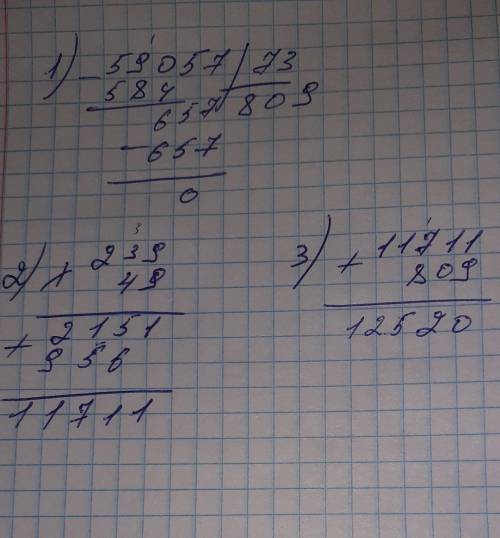 1) - 59057 | 73
584 809
657
- 657
0
2) × 239
49
+ 2151
956
11711
3) + 11711
809
12520